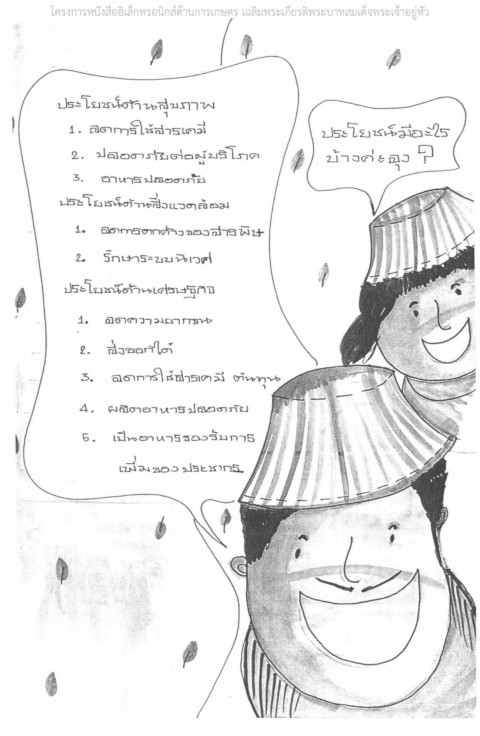 โครงการหนังสืออิเล็กทรอนิกส์ด้านการเกษตร เฉลิมพระเกียรติพระบาทสมเด็จพระเจ้าอยู่หัว
ประโยชน์มีอะไร
บ้างค่ะลุง ?
ประโยชน์ด้านสุขภาพ
1. ลดการใช้สารเคมี
2. ปลอดภัยต่อผู้บริโภค
3. อาหารปลอดภัย
ประโยชน์ด้านสิ่งแวดล้อม
1. ลดการตกค้างของสารพิษ
2. รักษาระบบนิเวศ
ประโยชน์ด้านเศรษฐกิจ
1. ลดความยากจน
2. ส่งออกได้
3. ลดการใช้สารเคมี ต้นทุน
4. ผลิตอาหารปลอดภัย
5. เป็นอาหารรองรับการ
เพิ่มของ ประชากร